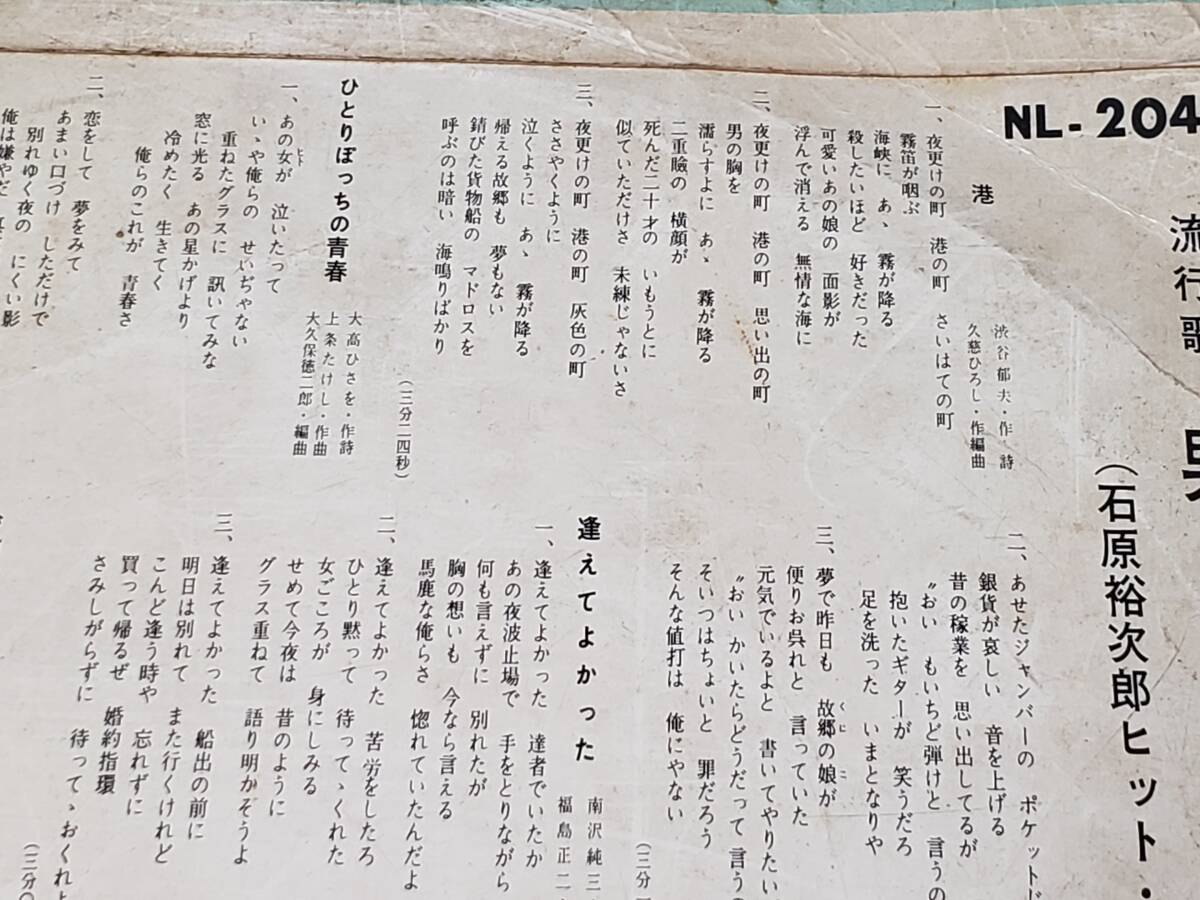 NL-204
流行歌
(石原裕次郎ヒット・
港
渋谷郁夫・作詩
久慈ひろし・作編曲
一、夜更けの町 港の町 さいはての町
霧笛が咽ぶ
海峡に あゝ 霧が降る
殺したいほど 好きだった
可愛いあの娘の 面影が
浮んで消える 無情な海に
二、夜更けの町 港の町 思い出の町
男の胸を
濡らすよに あゝ 霧が降る
二重瞼の 横顔が
死んだ二十才の いもうとに
似ていただけさ 未練じゃないさ
三、夜更けの町 港の町 灰色の町
ささやくように
泣くように あゝ 霧が降る
帰える故郷も 夢もない
錆びた貨物船の マドロスを
呼ぶのは暗い 海鳴りばかり
(三分二四秒)
ひとりぼっちの青春
大高ひさを・作詩
上条たけし・作曲
大久保徳二郎・編曲
一、あの女が 泣いたって
ひと
いゝや俺らの せいぢゃない
重ねたグラスに 訊いてみな
窓に光る あの星かげより
冷めたく 生きてく
俺らのこれが 青春さ
二、恋をして 夢をみて
あまい口づけ しただけで
別れゆく夜の にくい影
俺は嫌やだ
二、あせたジャンバーの ポケット
銀貨が哀しい 音を上げる
昔の稼業を 思い出してるが
〝おい もいちど弾けと 言うの
抱いたギターが 笑うだろ
足を洗った いまとなりや
三、夢で昨日も 故郷の娘が
くに こ
便りお呉れと 言っていた
元気でいるよと 書いてやりたい
〝おい かいたらどうだって 言う
そいつはちょいと 罪だろう
そんな値打は 俺にやない
(三分
逢えてよかった
南沢純三
福島正二
一、逢えてよかった 達者でいたか
あの夜波止場で 手をとりながら
何も言えずに 別れたが
胸の想いも 今なら言える
馬鹿な俺らさ 惚れていたんだよ
二、逢えてよかった 苦労をしたろ
ひとり黙って 待ってゝくれた
女ごころが 身にしみる
せめて今夜は 昔のように
グラス重ねて 語り明かそうよ
三、逢えてよかった 船出の前に
明日は別れて また行くけれど
こんど逢う時や 忘れずに
買って帰るぜ 婚約指環
さみしがらずに 待ってゝおくれよ
(三分